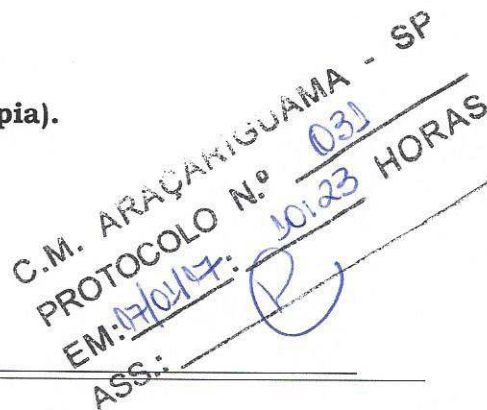 pia).
C.M. ARAÇARIGUAMA - SP
PROTOCOLO N.º 031
EM: 17/01/17: 10:23 HORAS
ASS.: